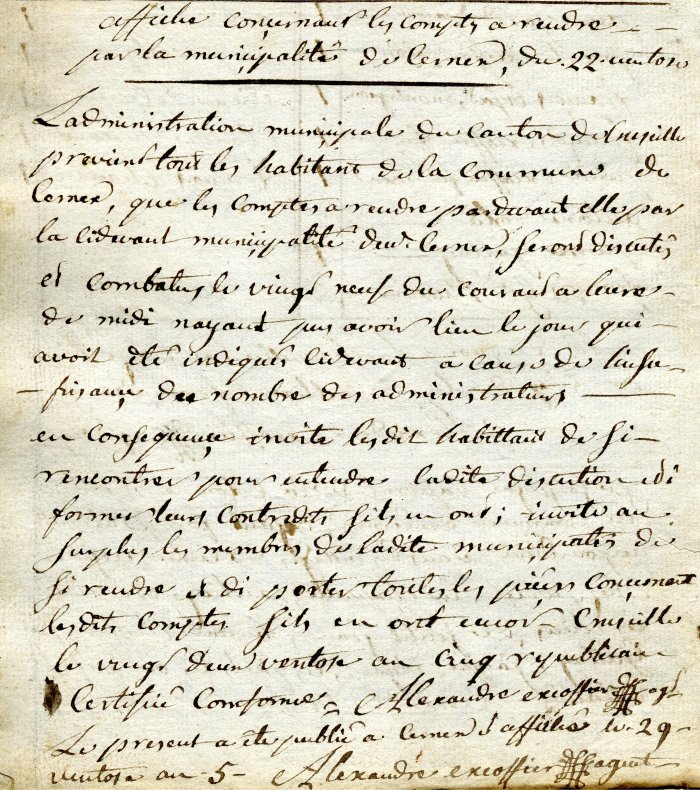 affiche conçernant les compts a rendre
par la muniçipalité de Cernex, du 22 ventose
Ladministration muniçipale du Canton de Cruseille
previent tout les habitant de la Commune de
Cernex, que les Comptes a rendre pardevant elle par
la Cidevant muniçipalité Cernex, seront discutés
et Combatus le vingt neuf du Courant a leure
de midi nayant pus avoir lieu le jour qui
avoit été indiqués Cidevant a Cause de linsu-
-fisançe du nombre des administraturs
en Consequençe invite lesdit habittant de si
rencontrer pour entendre ladite discution et di
former leurs Contredits sils en ont; invite au
surplus les membres de ladite muniçipalité de
si rendre et di porter toutes les pièces conçernant
lesdits Comptes sils en ont encor Cruseille
le vingt deux ventose an Cinq republicain
Certifié Conforme Alexandre excoffier agt
Le present a été publié a Cernex et affiché le 29
ventose an 5 - Alexandre excoffier agent